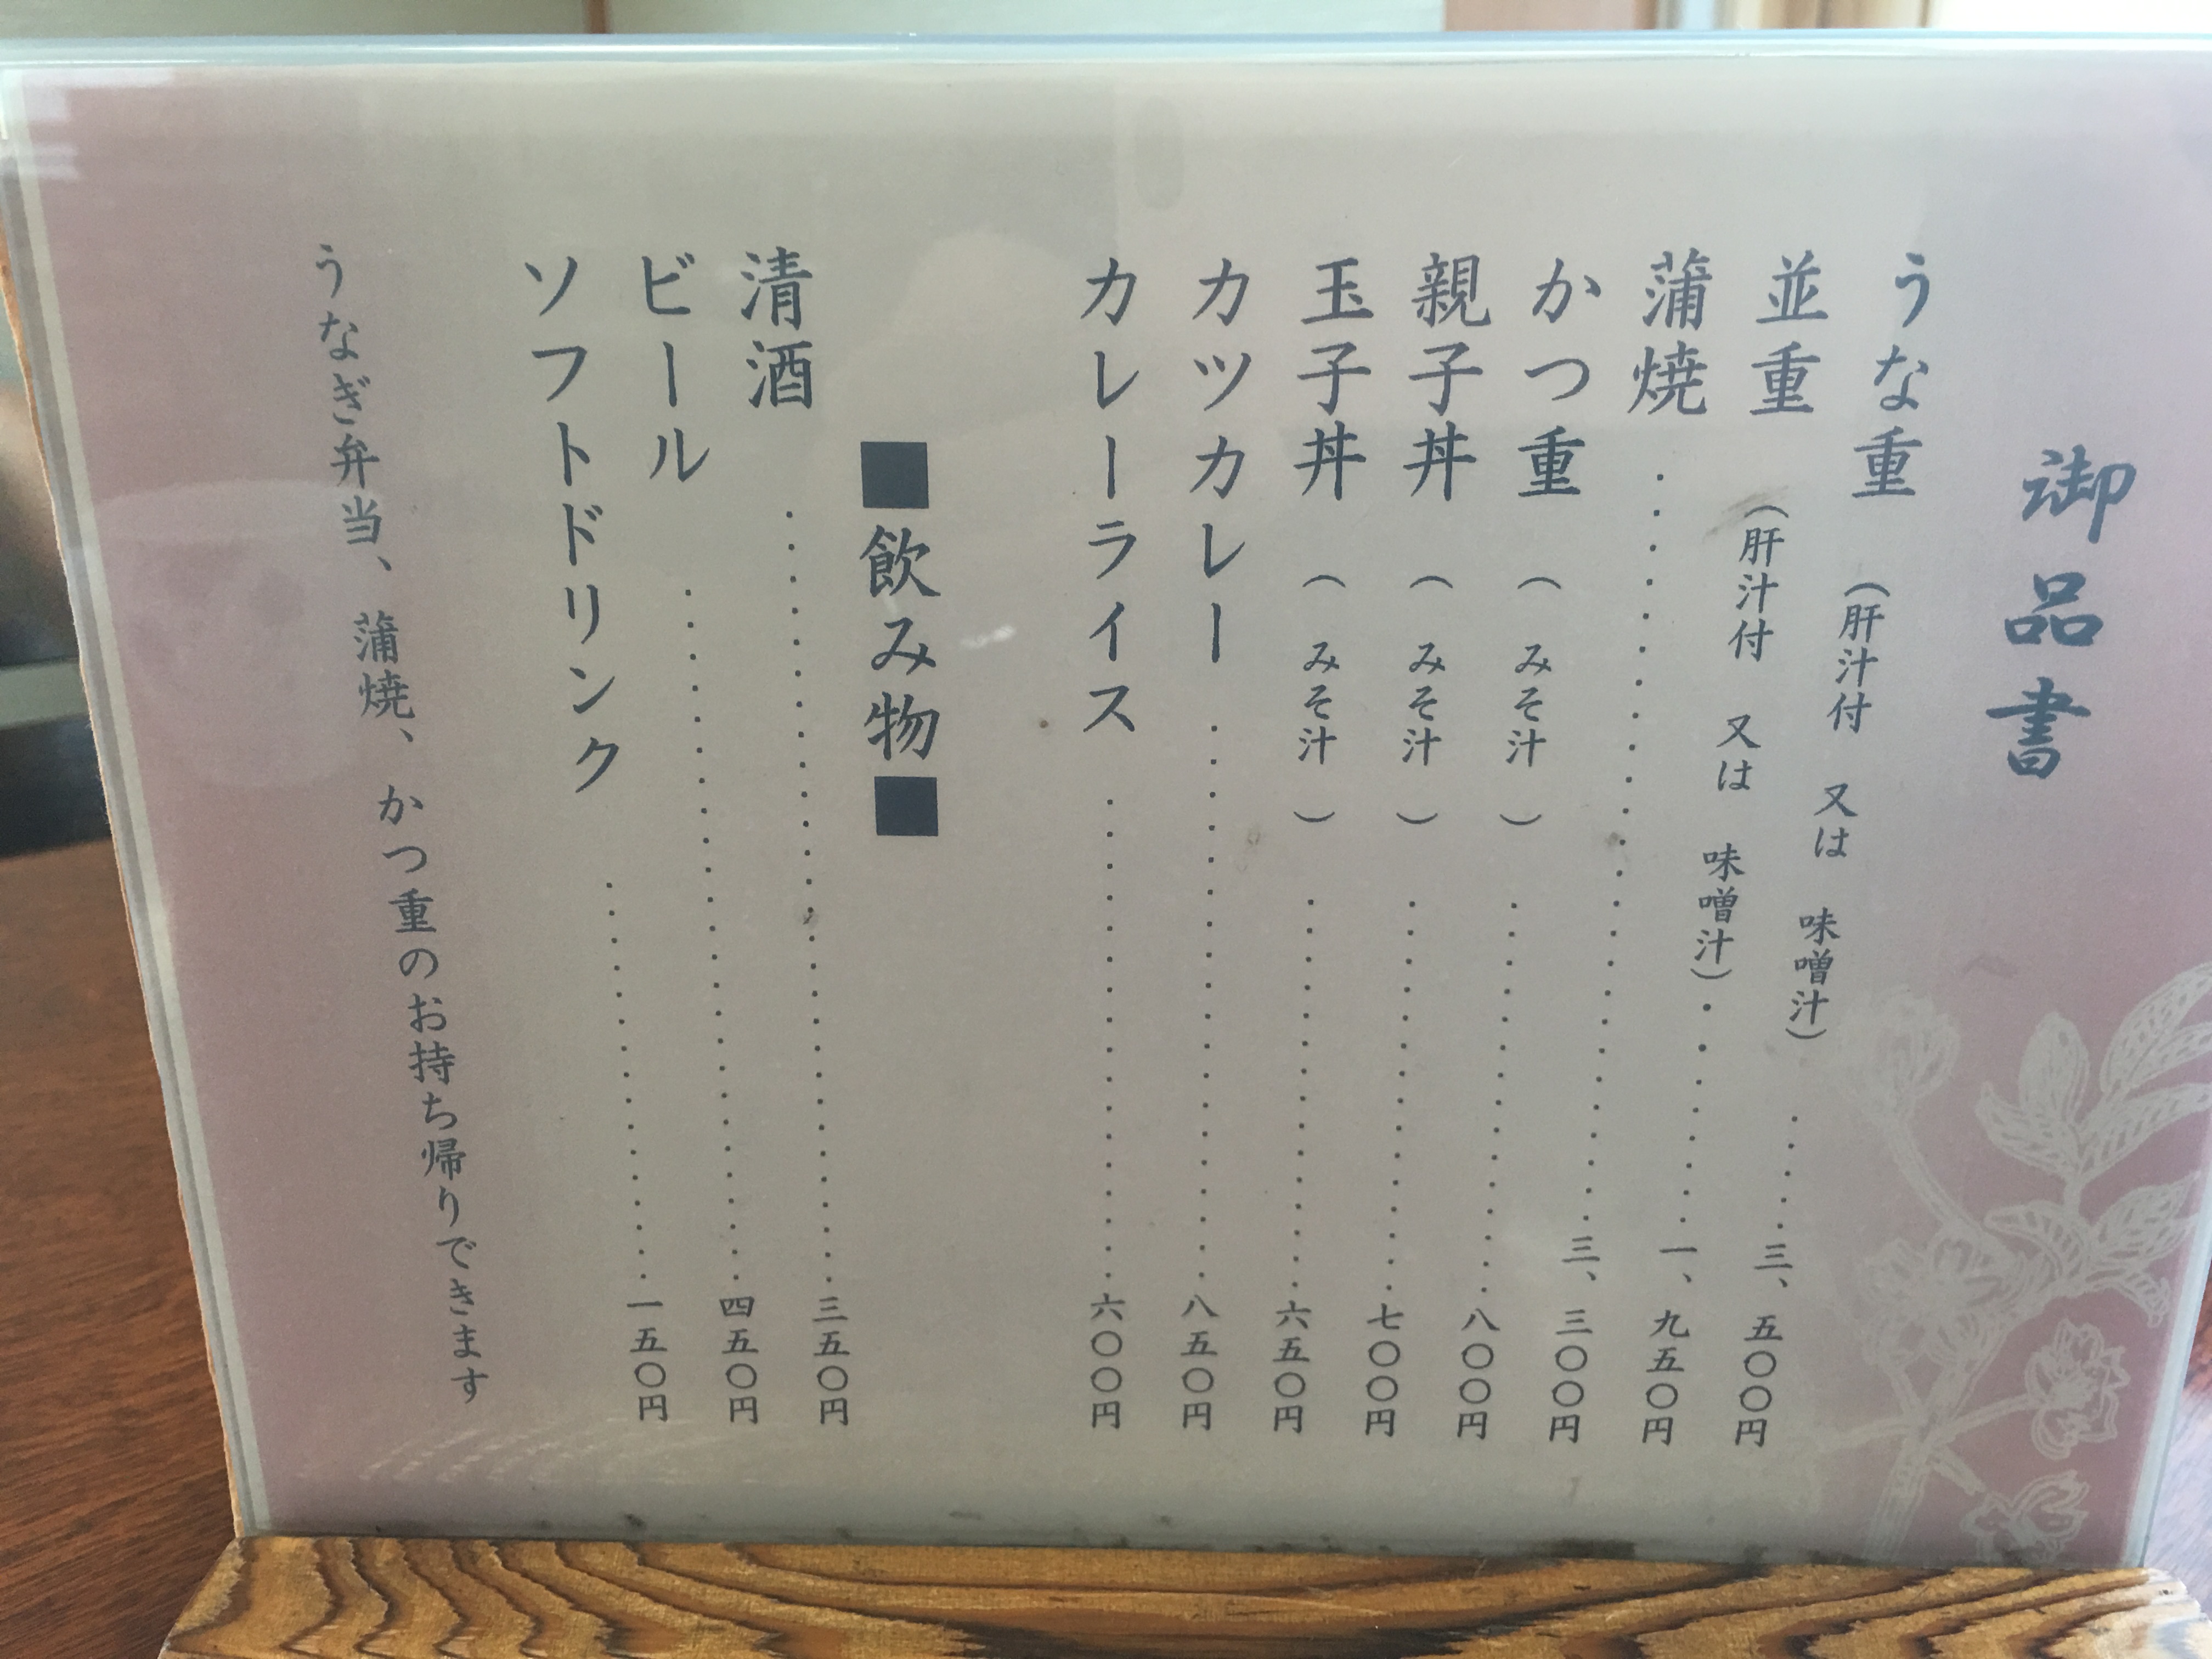 御品書
うな重 （肝汁付 又は 味噌汁）‥‥‥三、五〇〇円
並重 （肝汁付 又は 味噌汁）‥‥‥一、九五〇円
蒲焼‥‥‥‥‥‥‥‥‥‥三、三〇〇円
かつ重 （ みそ汁 ）‥‥‥‥‥八〇〇円
親子丼 （ みそ汁 ）‥‥‥‥‥七〇〇円
玉子丼 （ みそ汁 ）‥‥‥‥‥六五〇円
カツカレー‥‥‥‥‥‥‥八五〇円
カレーライス‥‥‥‥‥‥六〇〇円
■飲み物■
清酒‥‥‥‥‥‥‥‥‥三五〇円
ビール‥‥‥‥‥‥‥‥四五〇円
ソフトドリンク‥‥‥‥‥一五〇円
うなぎ弁当、蒲焼、かつ重のお持ち帰りできます